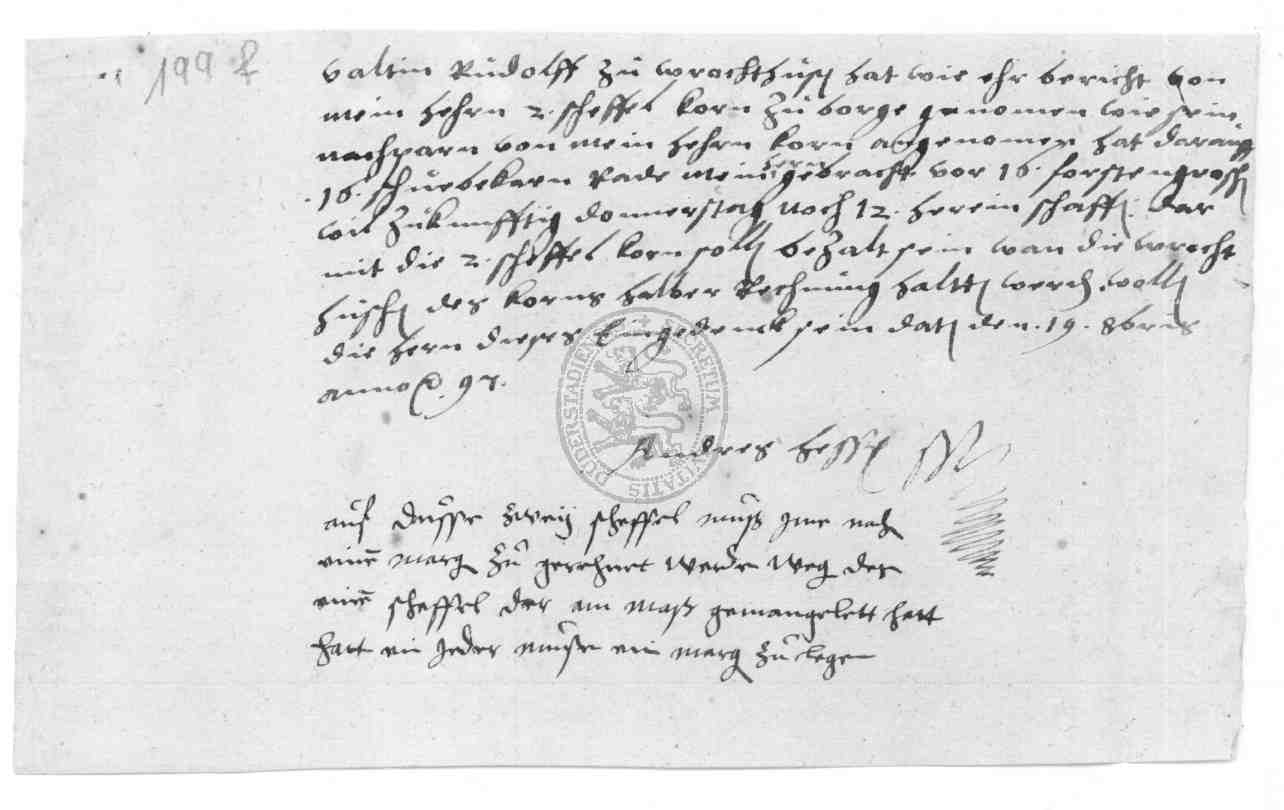 199
Valtin Rudolff zu wrochthusß hat wie ehr bericht von
mein hehrn 2. scheffel korn zu borge genomen wie sein
nachparn von mein hehrn korn angenomen hat darauff
16. schuebekarn Rade mein hern gebracht vor 16. forstengrosch
wil zukunfftig donnerstag noch 12. herein schaffen. dar
mit die 2. scheffel korn sollen bezalt sein wan die wrocht
husschen des korns halber Rechnung haltten werden wollen
die hern dieses Eingedenck sein daten den. 19. 8bris
anno 97.
Andres hessse
auf dusse zweij scheffel muß ime noch
eine marg zu gerechnet werden weg des
eine scheffel der am maß gemangelett hatt
hatt ein jeder muße ein marg zu legen
DUDERSTADIENSIS CIVITATIS